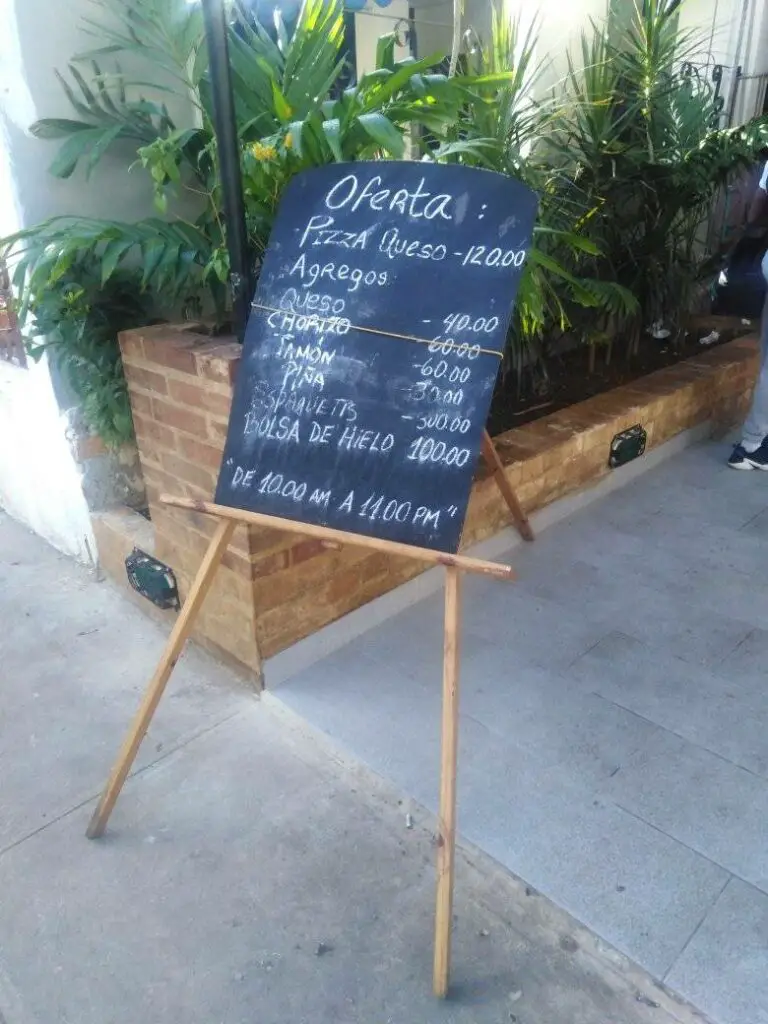 Oferta :
Pizza Queso - 120.00
Agregos:
Queso - 40.00
CHORIZO 60.00
JAMÓN - 60.00
PIÑA - 30.00
ESPAGUETIS - 300.00
BOLSA DE HIELO 100.00
"DE 10.00 AM A 11.00 PM"